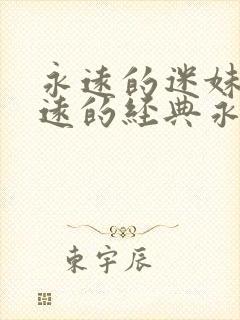 永远的迷妹
远的經典永
東宇辰